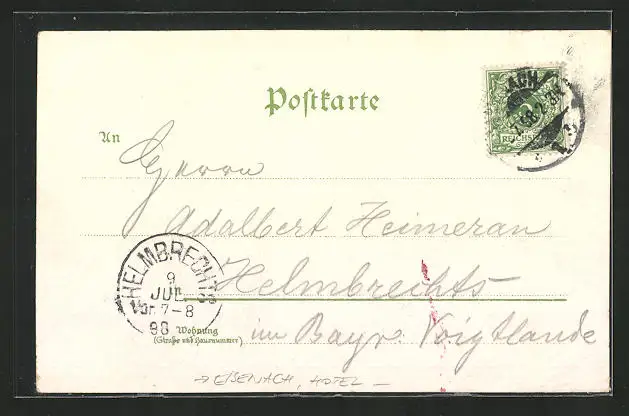 Postkarte
An
Herrn
Adalbert Heimeran
Helmbrechts
im Bayr. Voigtlande
HELMBRECHTS
9
JUL
Vor. 7-8
98
Wohnung
(Straße und Hausnummer)
REICHS
→ EISENACH, HOTEL —